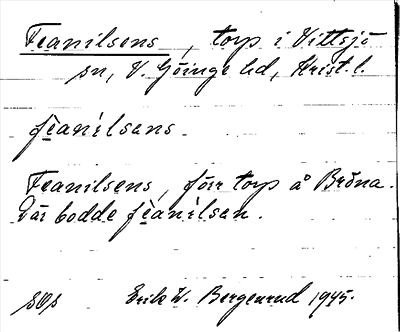 Feanilsens, torp i Vittsjö
sn, V. Göinge hd, Krist. l.
fèanílsens.
Feanilsens, förr torp å Bröna.
Där bodde fèanílsen.
Erik W. Bergenrud 1945.